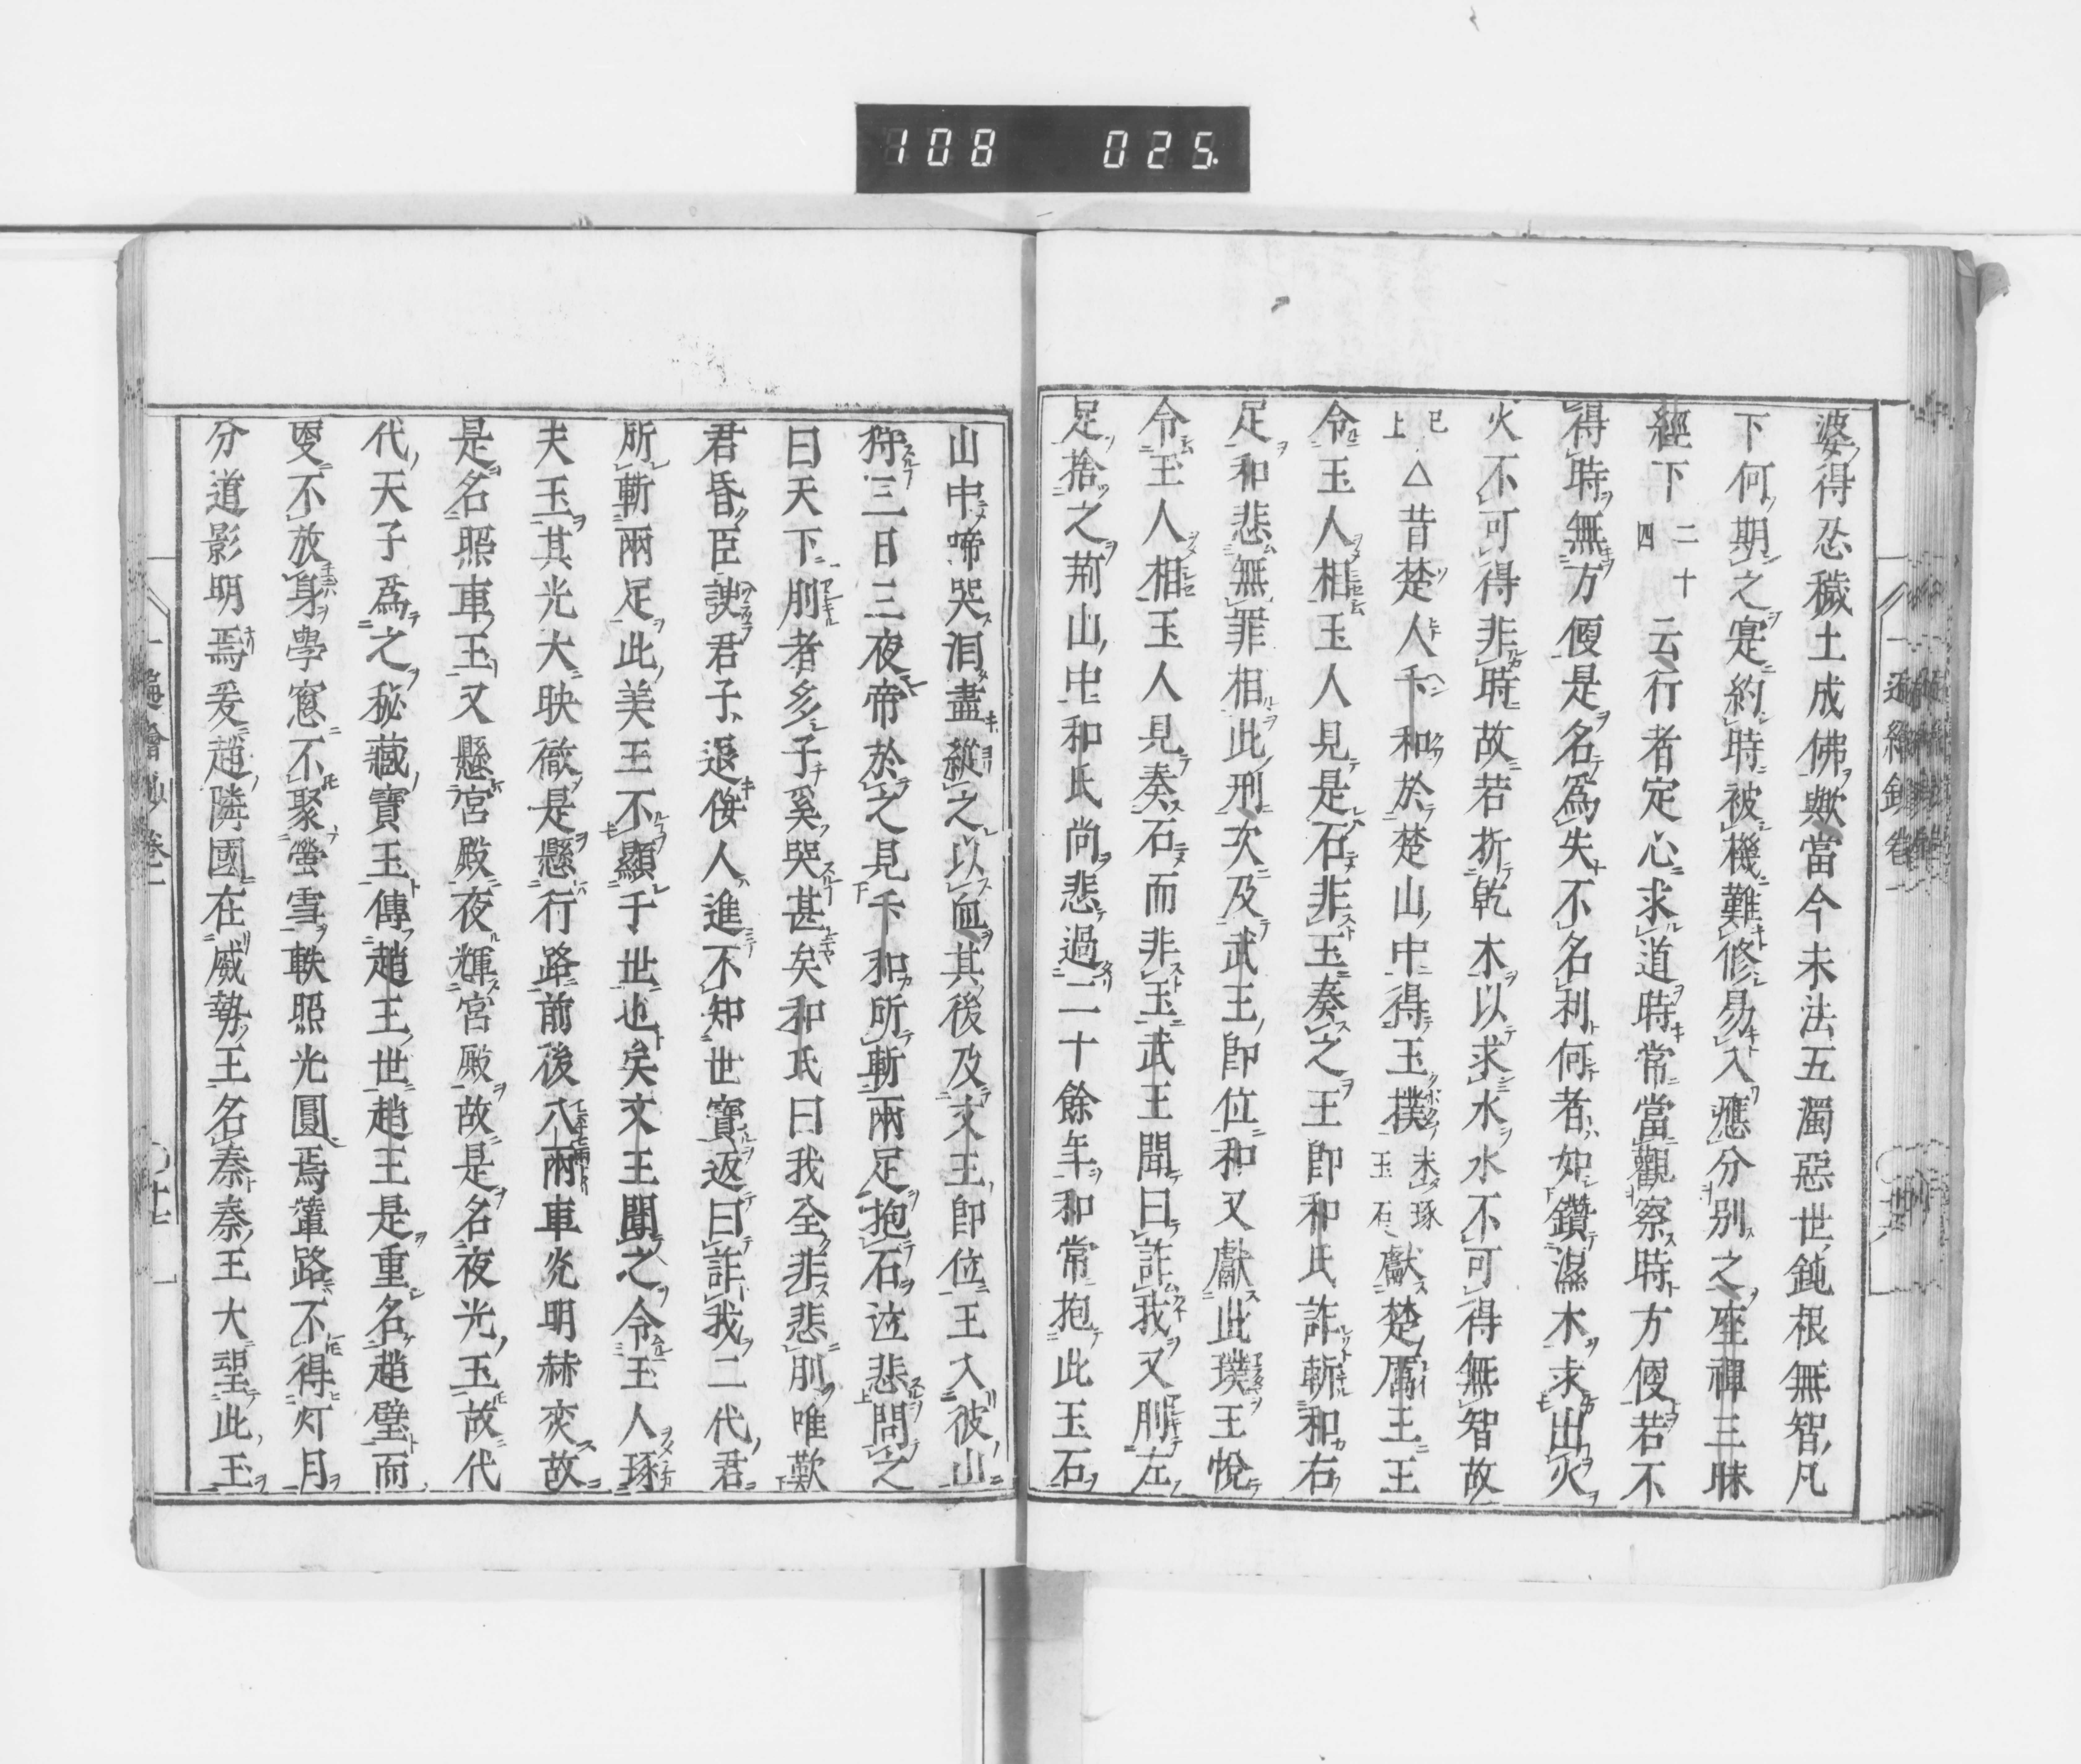 108 025
婆得忍穢土成佛歟當今未法五濁惡世鈍根無智凡
下何期之寔約時被機難修易入應分別之座禪三昧
經下二十四云行者定心求道時常當觀察時方便若不
得時無方便是名爲失不名利何者如鑽濕木求出火
火不可得非時故若折乾木以求水水不可得無智故
已上△昔楚人卞和於楚山中得玉撲未琢玉石獻楚厲王王
令玉人相玉人見是石非玉奏之王即和氏詐斬和右
足和悲無罪相此刑次及武王即位和又獻此璞王悅
令玉人相玉人見奏石而非玉武王聞曰詐我又刖左
足捨之荊山中和氏尚悲過二十餘年和常抱此玉石
山中啼哭泪盡縱之以血其後及文王即位王入彼山
狩三日三夜帝於之見卞和所斬兩足抱石泣悲問之
曰天下刖者多子奚哭甚矣和氏曰我全非悲刖唯歎
君昏臣諛君子退侫人進不知世寶返曰詐我二代君
所斬兩足此美王不顯于世也矣文王聞之令玉人琢
夫玉其光大映徹是懸行路前後八兩車光明赫奕故
是名照車玉又懸宮殿夜輝宮殿故是名夜光玉故代
代天子爲之秘藏寶玉傳趙王世趙王是重名趙璧而
㚆不放身學窓不聚螢雪軼照光圓焉輦路不得灯月
分道影明焉爰趙隣國在威勢王名秦秦王大望此玉